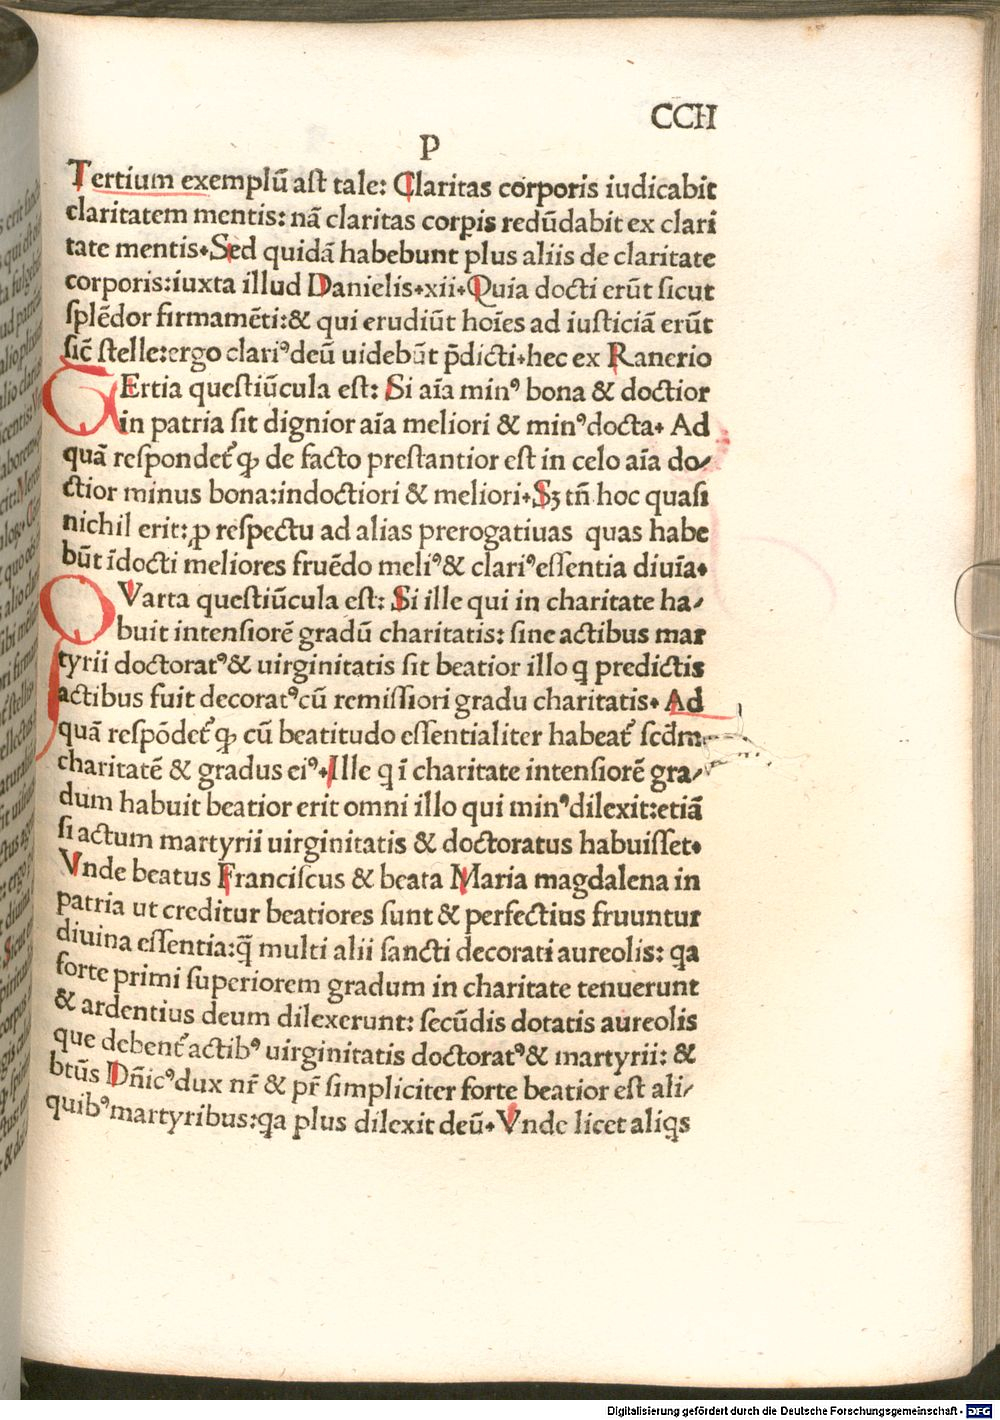 CCII
P
Tertium exemplū aſt tale: Claritas corporis iudicabit
claritatem mentis: nā claritas corpis redūdabit ex clari
tate mentis. Sed quidā habebunt plus aliis de claritate
corporis: iuxta illud Danielis. xii. Quia docti erūt ſicut
ſplēdor firmamēti: & qui erudiūt hoīes ad iuſticiā erūt
ſic̄ ſtelle: ergo clariꝰ deū uidebūt p̄dicti. hec ex Ranerio
TErtia queſtiūcula eſt: Si aīa minꝰ bona & doctior
in patria ſit dignior aīa meliori & minꝰ docta. Ad
quā reſpondet᷑ ꝙ de facto preſtantior eſt in celo aīa do/
ctior minus bona: indoctiori & meliori. Sꝫ tn̄ hoc quaſi
nichil erit: ꝓ reſpectu ad alias prerogatiuas quas habe
būt īdocti meliores fruēdo meliꝰ & clariꝰ eſſentia diuīa.
QVarta queſtiūcula eſt: Si ille qui in charitate ha/
buit intenſiorē gradū charitatis: ſine actibus mar
tyrii doctoratꝰ & uirginitatis ſit beatior illo q predictis
actibus fuit decoratꝰ cū remiſſiori gradu charitatis. Ad
quā reſpōdet᷑ ꝙ cū beatitudo eſſentialiter habeat᷑ ſcd̄m
charitatē & gradus eiꝰ. Ille q ī charitate intenſiorē gra/
dum habuit beatior erit omni illo qui minꝰ dilexit: etiā
ſi actum martyrii uirginitatis & doctoratus habuiſſet.
Vnde beatus Franciſcus & beata Maria magdalena in
patria ut creditur beatiores ſunt & perfectius fruuntur
diuina eſſentia: q̄ multi alii ſancti decorati aureolis: qa
forte primi ſuperiorem gradum in charitate tenuerunt
& ardentius deum dilexerunt: ſecūdis dotatis aureolis
que debent᷑ actibꝰ uirginitatis doctoratꝰ & martyrii: &
btūs Dn̄icꝰ dux nr̄ & pr̄ ſimpliciter forte beatior eſt ali/
quibꝰ martyribus: qa plus dilexit deū. Vnde licet aliqs
Digitalisierung gefördert durch die Deutsche Forschungsgemeinschaft - DFG